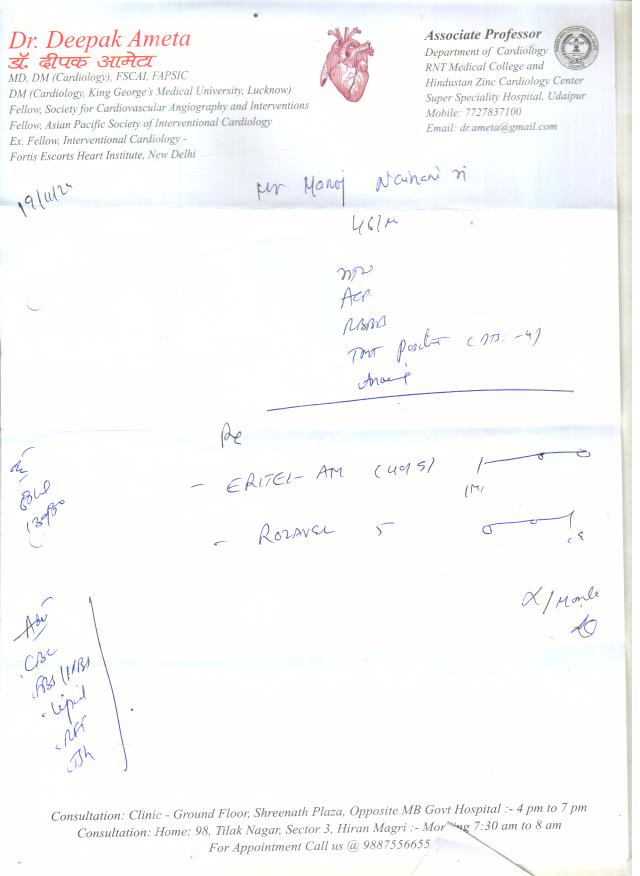 Dr. Deepak Ameta
डॉ. दीपक आमेटा
MD, DM (Cardiology), FSCAI, FAPSIC
DM (Cardiology, King George's Medical University, Lucknow)
Fellow, Society for Cardiovascular Angiography and Interventions
Fellow, Asian Pacific Society of Interventional Cardiology
Ex. Fellow, Interventional Cardiology -
Fortis Escorts Heart Institute, New Delhi
Associate Professor
Department of Cardiology
RNT Medical College and
Hindustan Zinc Cardiology Center
Super Speciality Hospital, Udaipur
Mobile: 7727837100
Email: dr.ameta@gmail.com
Mr Manoj
46/M
ACP
RBBB
TMT
Rx
- ERITEL-AM (40/5)
- ROZAVEL 5
Adv
CBC
Lipid
RFT
Consultation: Clinic - Ground Floor, Shreenath Plaza, Opposite MB Govt Hospital :- 4 pm to 7 pm
Consultation: Home: 98, Tilak Nagar, Sector 3, Hiran Magri :- Morning 7:30 am to 8 am
For Appointment Call us @ 9887556655